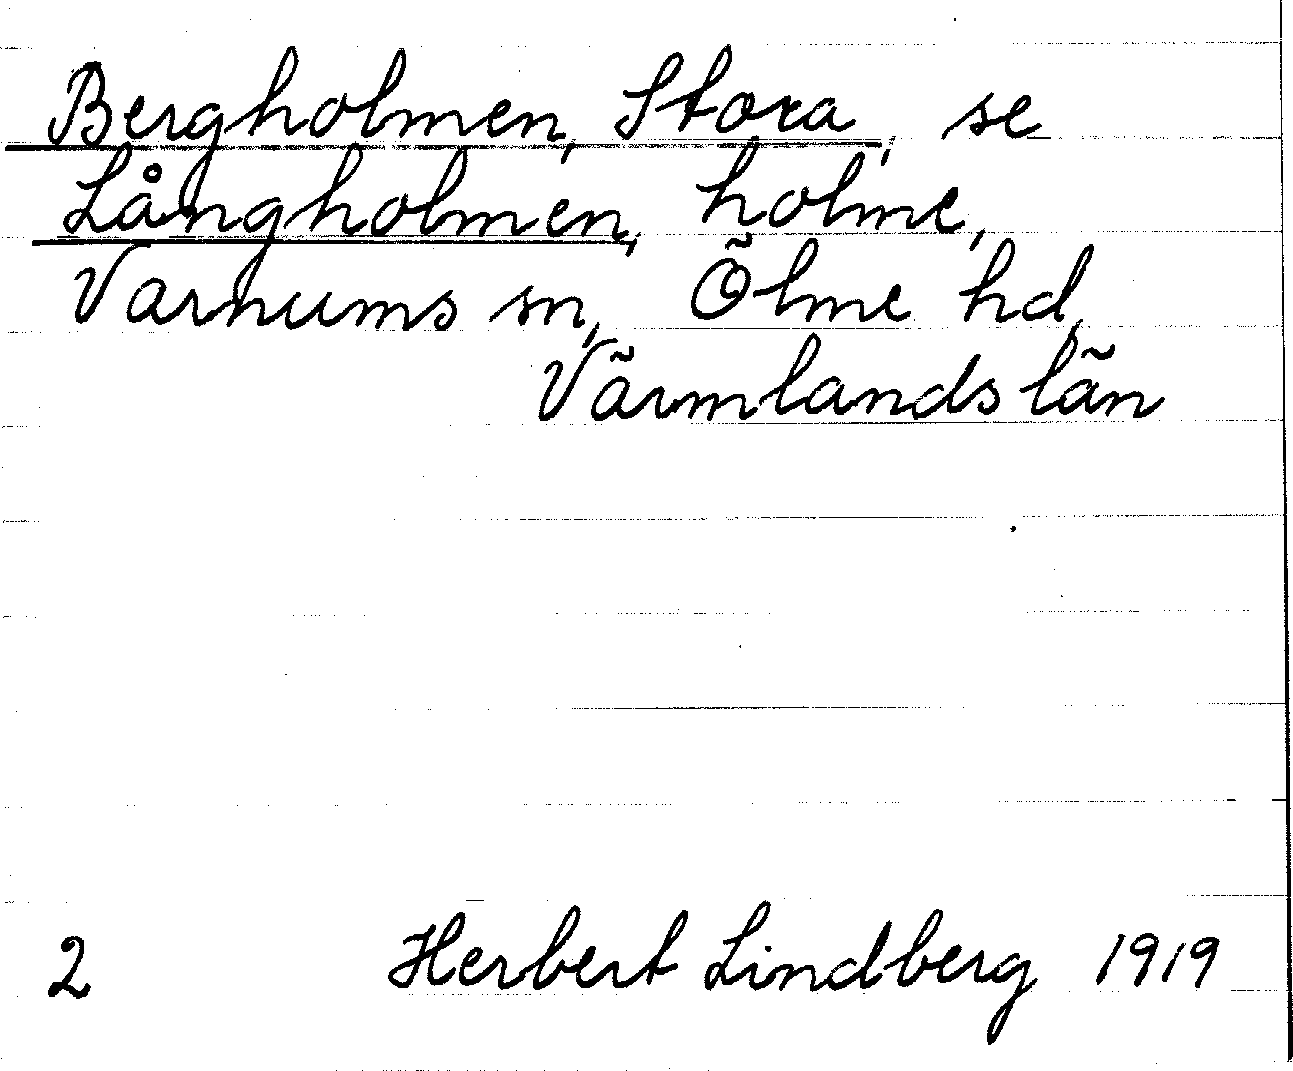 Bergholmen, Stora, se
Långholmen, holme,
Varnums sn, Ölme hd,
Värmlands län
2 Herbert Lindberg 1919